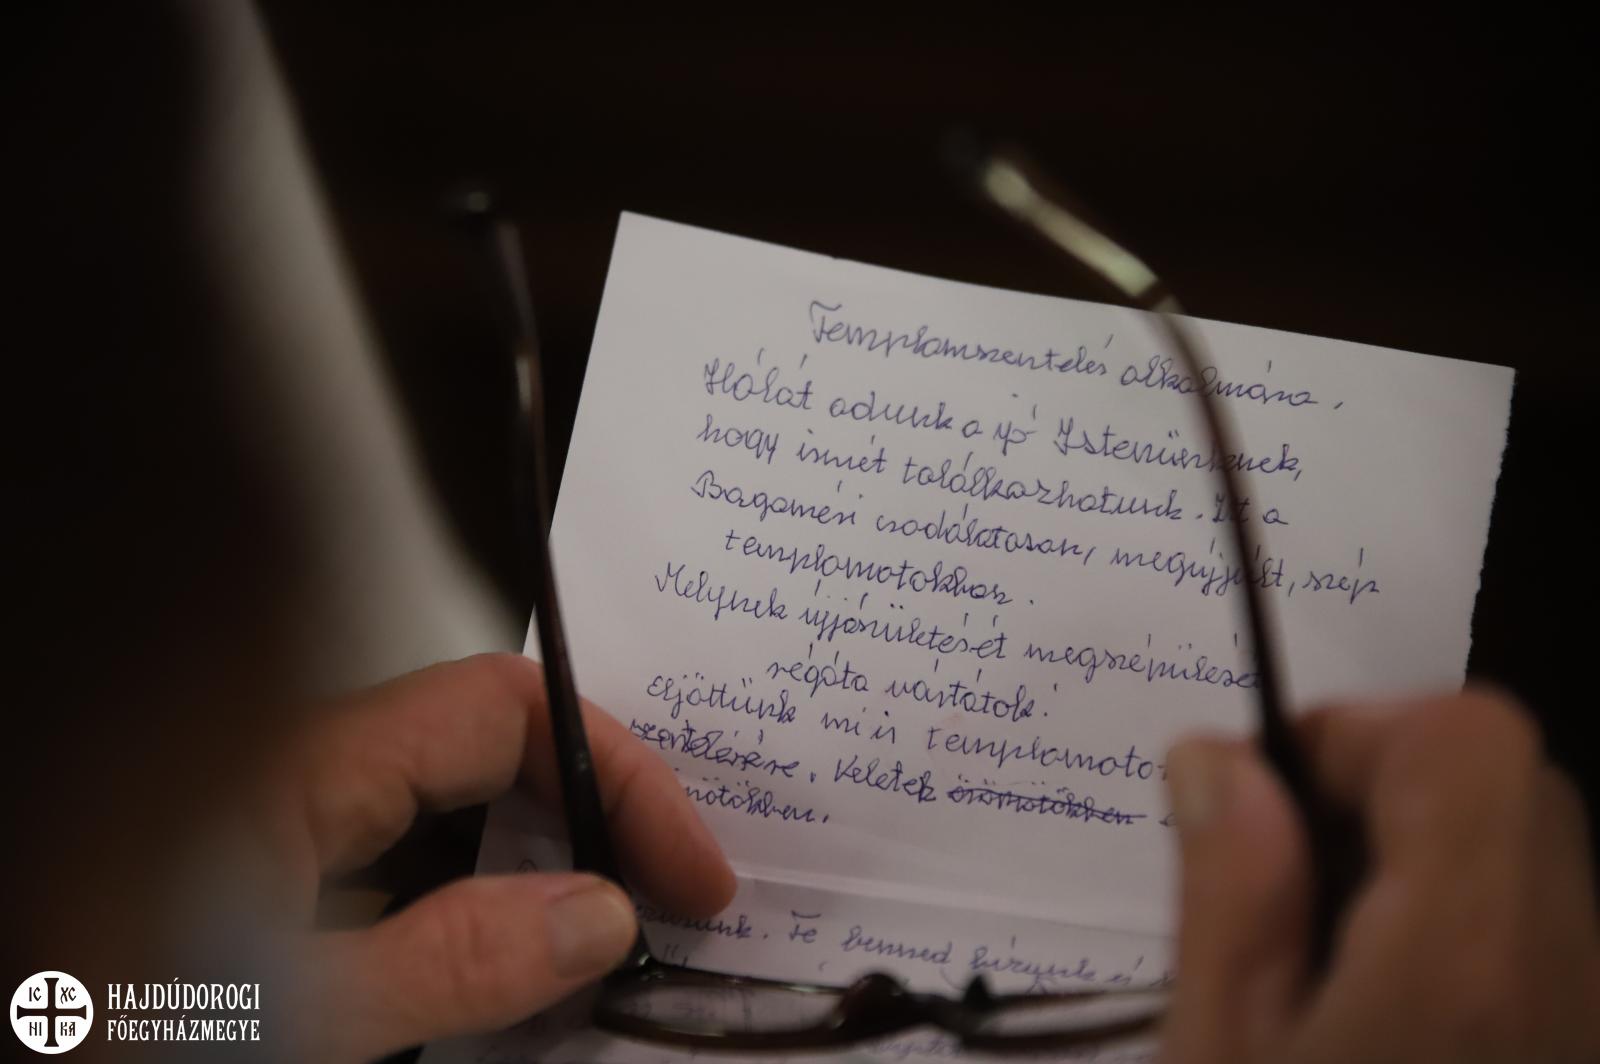 Templomszentelés alkalmára.
Hálát adunk a jó Istenünknek,
hogy ismét találkozhatunk. Itt a
Bagaméri csodálatosan, megújjúlt, szép
templomotokban.
Melynek újjászületését megszépülését
régóta vártátok.
Eljöttünk mi is templomoto
szentelésére. Veletek örömötökben
mötökben.
Te benned bízunk és
HAJDÚDOROGI
FŐEGYHÁZMEGYE
IC XC
NI KA